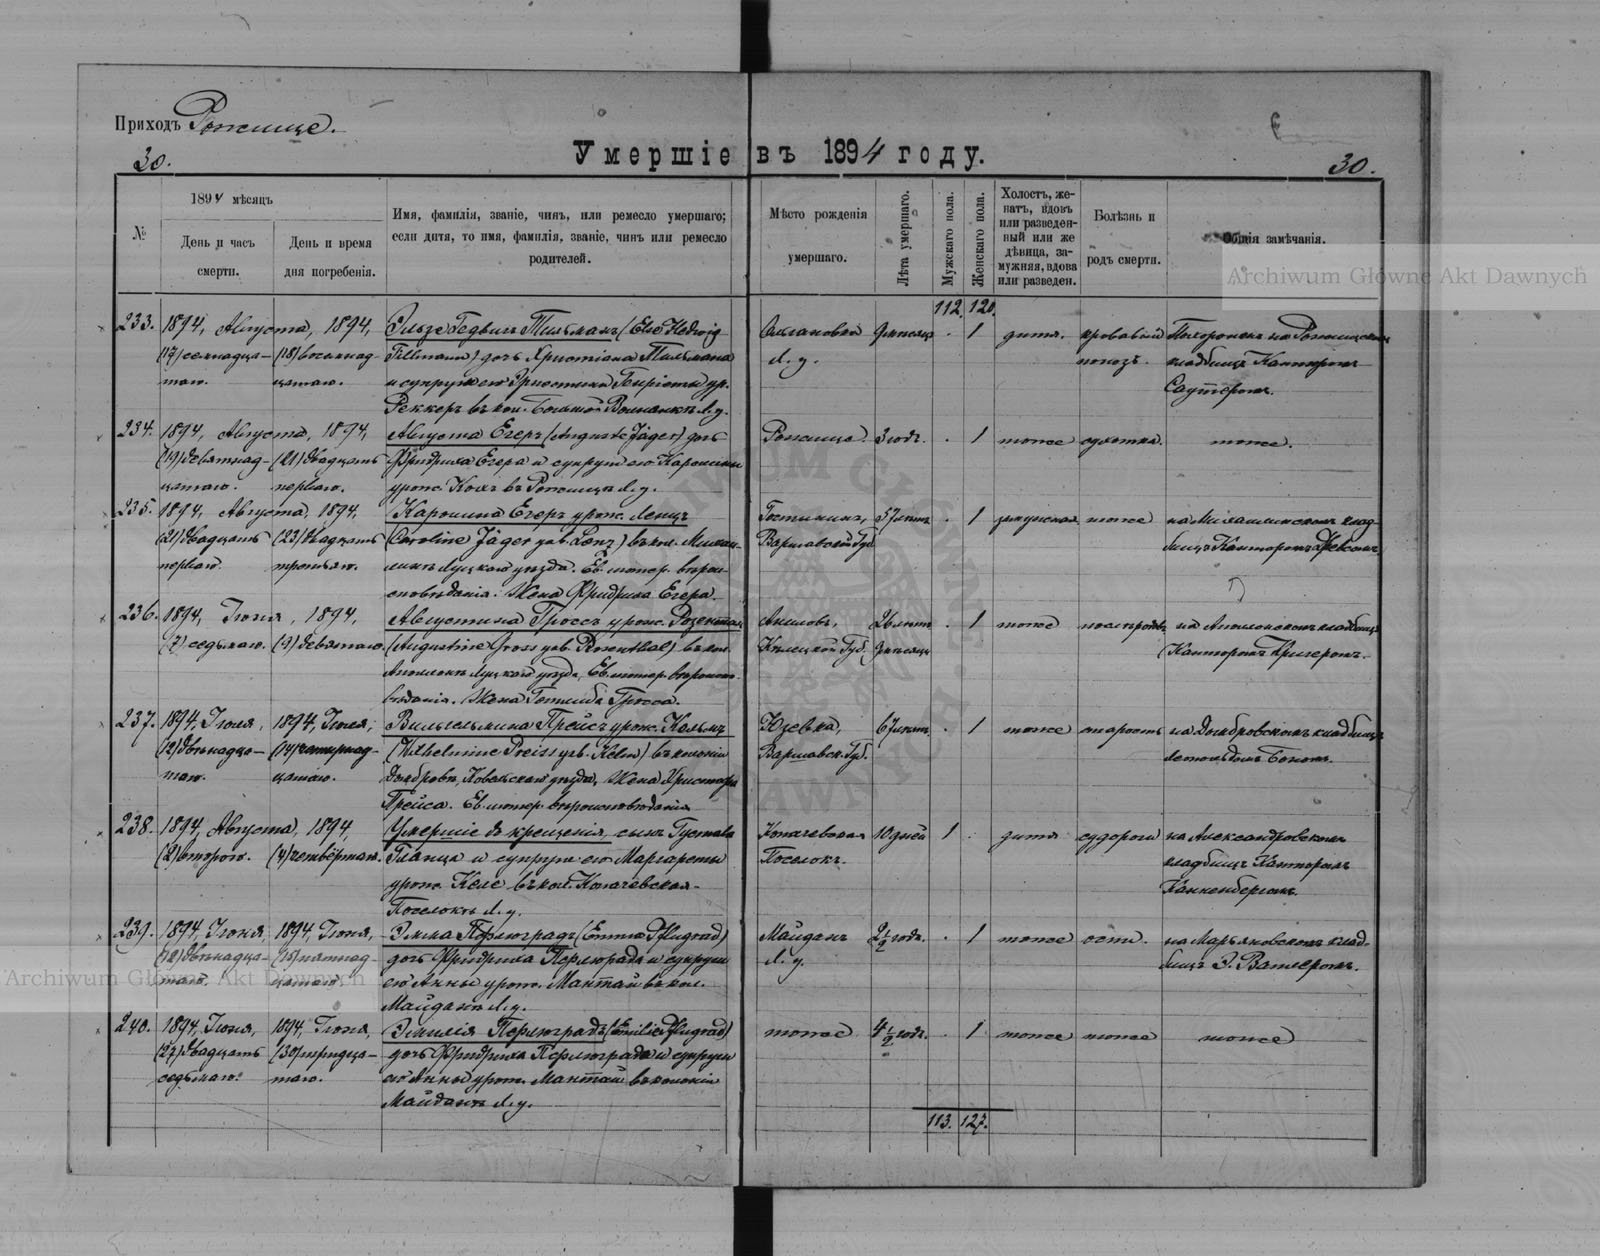 Приходъ Рожище.
30.
Умершіе въ 1894 году.
30.
№
1894 мѣсяцъ
День и часъ смерти.
День и время дня погребенія.
Имя, фамилія, званіе, чинъ, или ремесло умершаго;
если дитя, то имя, фамилія, званіе, чинъ или ремесло
родителей.
Мѣсто рожденія
умершаго.
Лѣта умершаго.
Мужскаго пола.
Женскаго пола.
Холостъ, же-
натъ, вдовъ
или разведен-
ный или же
дѣвица, за-
мужняя, вдова
или разведен.
Болѣзнь и
родъ смерти.
Общія замѣчанія.
Archiwum Główne Akt Dawnych
112. 120.
233. 1894, Августа, 1894,
(17) семнадца-
таго.
(18) восемнад-
цатаго.
Эльзе Гедвигъ Тильманъ (Else Hedwig
Tillmann) дочь Христіана Тильмана
и супруги его Эрнестины Генріеты ур.
Реккеръ въ кол. Л. у.
Л. у.
9 мѣсяц. 1
дитя.
кровавый
поносъ.
Похороненъ на Рожищскомъ
кладбищѣ Канторомъ
234. 1894, Августа, 1894,
(19) девятнад-
цатаго.
(21) двадцать
перваго.
Августа Егеръ (Auguste Jäger) дочь
Фридриха Егера и супруги его Каролины
урож. въ Рожищѣ Л. у.
Рожище. 3 годъ. 1 тоже сухотка. тоже.
235. 1894, Августа, 1894,
(21) двадцать
перваго.
(23) двадцать
третьяго.
Каролина Егеръ урож. Ленцъ
(Caroline Jäger geb. Lenz) въ кол.
Луцкаго уѣзда. Ев. лютер. вѣрои-
сповѣданія. Жена Фридриха Егера.
Гостининъ,
Варшавской Губ.
57 лѣтъ. 1 замужняя тоже
на клад-
бищѣ Канторомъ
236. 1894, Іюня, 1894,
(7) седьмаго. (9) девятаго.
Августина Гроссъ урож. Розенталь
(Augustine Gross geb. Rosenthal) въ кол.
Луцкаго уѣзда, Ев. лютер. вѣроиспо-
вѣданія. Жена Готлиба Гросса.
Кѣлецкой Губ.
26 лѣтъ
9 мѣсяцъ
1 тоже
на кладбищѣ
Канторомъ Кригеромъ.
237. 1894, Іюля, 1894, Іюля,
(12) двѣнадца-
таго.
(14) четырнад-
цатаго.
Вильгельмина Прейсъ урож. Кельмъ
(Wilhelmine Preiss geb. Kelm) въ колоніи
Домбровѣ, Ковельскаго уѣзда, Жена Христофа
Прейса. Ев. лютер. вѣроисповѣданія
Варшавск. Губ.
67 лѣтъ. 1 тоже старость
на Домбровскомъ кладбищѣ
238. 1894, Августа, 1894,
(2) второго. (4) четвёртаго.
Умершіе до крещенія, сынъ Густава
Гланца и супруги его Маргареты
урож. Келе въ кол. Копачевская-
Поселокъ Л. у.
Копачевская
Поселокъ.
10 дней 1 дитя судороги
на Александровскомъ
кладбищѣ Канторомъ
239. 1894, Іюня, 1894, Іюня,
(12) двѣнадца-
таго.
(15) пятнад-
цатаго
Эмма Пфлюградъ (Emma Pflugrad)
дочь Фридриха Пфлюграда и супруги
его Анны урож. Мантай въ кол.
Майданѣ Л. у.
Майданъ
Л. у.
2 1/2 годъ. 1 тоже оспы.
на Марьяновскомъ клад-
бищѣ Э.
Archiwum Główne Akt Dawnych
240. 1894, Іюня, 1894, Іюня,
(27) двадцать
седьмаго.
(30) тридца-
таго.
Эмилія Пфлюградъ (Emilie Pflugrad)
дочь Фридриха Пфлюграда и супруги
его Анны урож. Мантай въ колоніи
Майданѣ Л. у.
тоже 4 1/2 годъ. 1 тоже тоже тоже
113. 127.